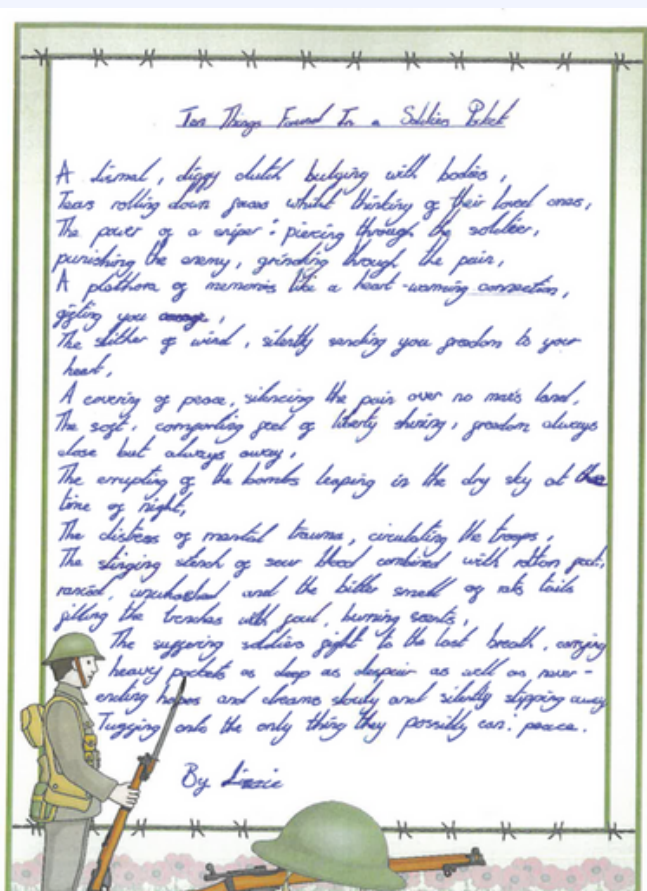 Ten Things Found In a Soldiers Pocket
A dismal, diggy clutch bulging with bodies,
Tears rolling down faces whilst thinking of their loved ones,
The power of a sniper: piercing through the soldier,
punishing the enemy, grinding through the pain,
A plethora of memories like a heart-warming connection,
gifting you
The slither of wind, silently sending you freedom to your
heart,
A covering of peace, silencing the pain over no man's land,
The soft, comforting feel of liberty shining, freedom always
close but always away,
The errupting of the bombs leaping in the dry sky at the
time of night,
The distress of mental trauma, circulating the troops,
The stinging stench of sour blood combined with rotton feet,
rancid, unwashed and the bitter smell of rats tails
filling the trenches with foul, burning scents,
The suffering soldiers fight to the last breath, carrying
heavy pockets as deep as despair as well as never-
ending hopes and dreams slowly and silently slipping away
Tugging onto the only thing they possibly can: peace.
By Lizzie